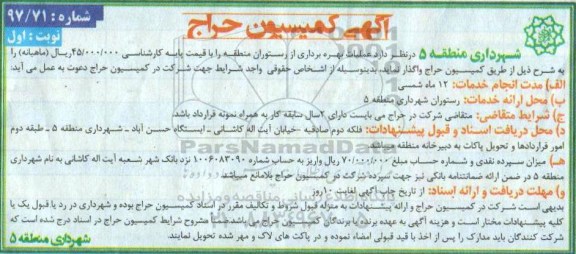 آگهی کمیسیون حراج
شماره : ۹۷/۷۱
نوبت : اول
شهرداری منطقه ۵ در نظر دارد عملیات بهره برداری از رستوران منطقه را با قیمت پایه کارشناسی ۴۵/۰۰۰/۰۰۰ ریال (ماهیانه) را
به شرح ذیل از طریق کمیسیون حراج واگذار نماید، بدینوسیله از اشخاص حقوقی واجد شرایط جهت شرکت در کمیسیون حراج دعوت به عمل می آید:
الف) مدت انجام خدمات: ۱۲ ماه شمسی
ب) محل ارائه خدمات: رستوران شهرداری منطقه ۵
ج) شرایط متقاضی: متقاضی شرکت در حراج می بایست دارای ۲ سال سابقه کار به همراه نمونه قرارداد باشد.
د) محل دریافت اسناد و قبول پیشنهادات: فلکه دوم صادقیه -خیابان آیت اله کاشانی - ایستگاه حسن آباد - شهرداری منطقه ۵ - طبقه دوم
امور قراردادها و تحویل پاکات به دبیرخانه منطقه می باشد.
ه) میزان سپرده نقدی و شماره حساب مبلغ ۷۰/۰۰۰/۰۰۰ ریال واریز به حساب شماره ۱۰۰۶۰۸۳۰۹۰ نزد بانک شهر شعبه آیت اله کاشانی به نام شهرداری
منطقه ۵ در ضمن ارائه ضمانتنامه بانکی نیز جهت سپرده شرکت در کمیسیون حراج بلامانع میباشد
و) مهلت دریافت و ارائه اسناد: از تاریخ چاپ آگهی لغایت ۱۰ روز
بدیهی است شرکت در کمیسیون حراج و ارائه پیشنهادات به منزله قبول شروط و تکالیف مقرر در اسناد کمیسیون حراج بوده و شهرداری در رد یا قبول یک یا
کلیه پیشنهادات مختار است و هزینه آگهی به عهده برنده یا برندگان کمیسیون حراج می باشد ضمناً مشروح شرایط کمیسیون حراج در اسناد درج شده است که
شرکت کنندگان باید مدارک را پس از اخذ با قید قبولی امضاء نموده و در پاکت های لاک و مهر شده تحویل نمایند.
شهرداری منطقه ۵
ParsNamadData